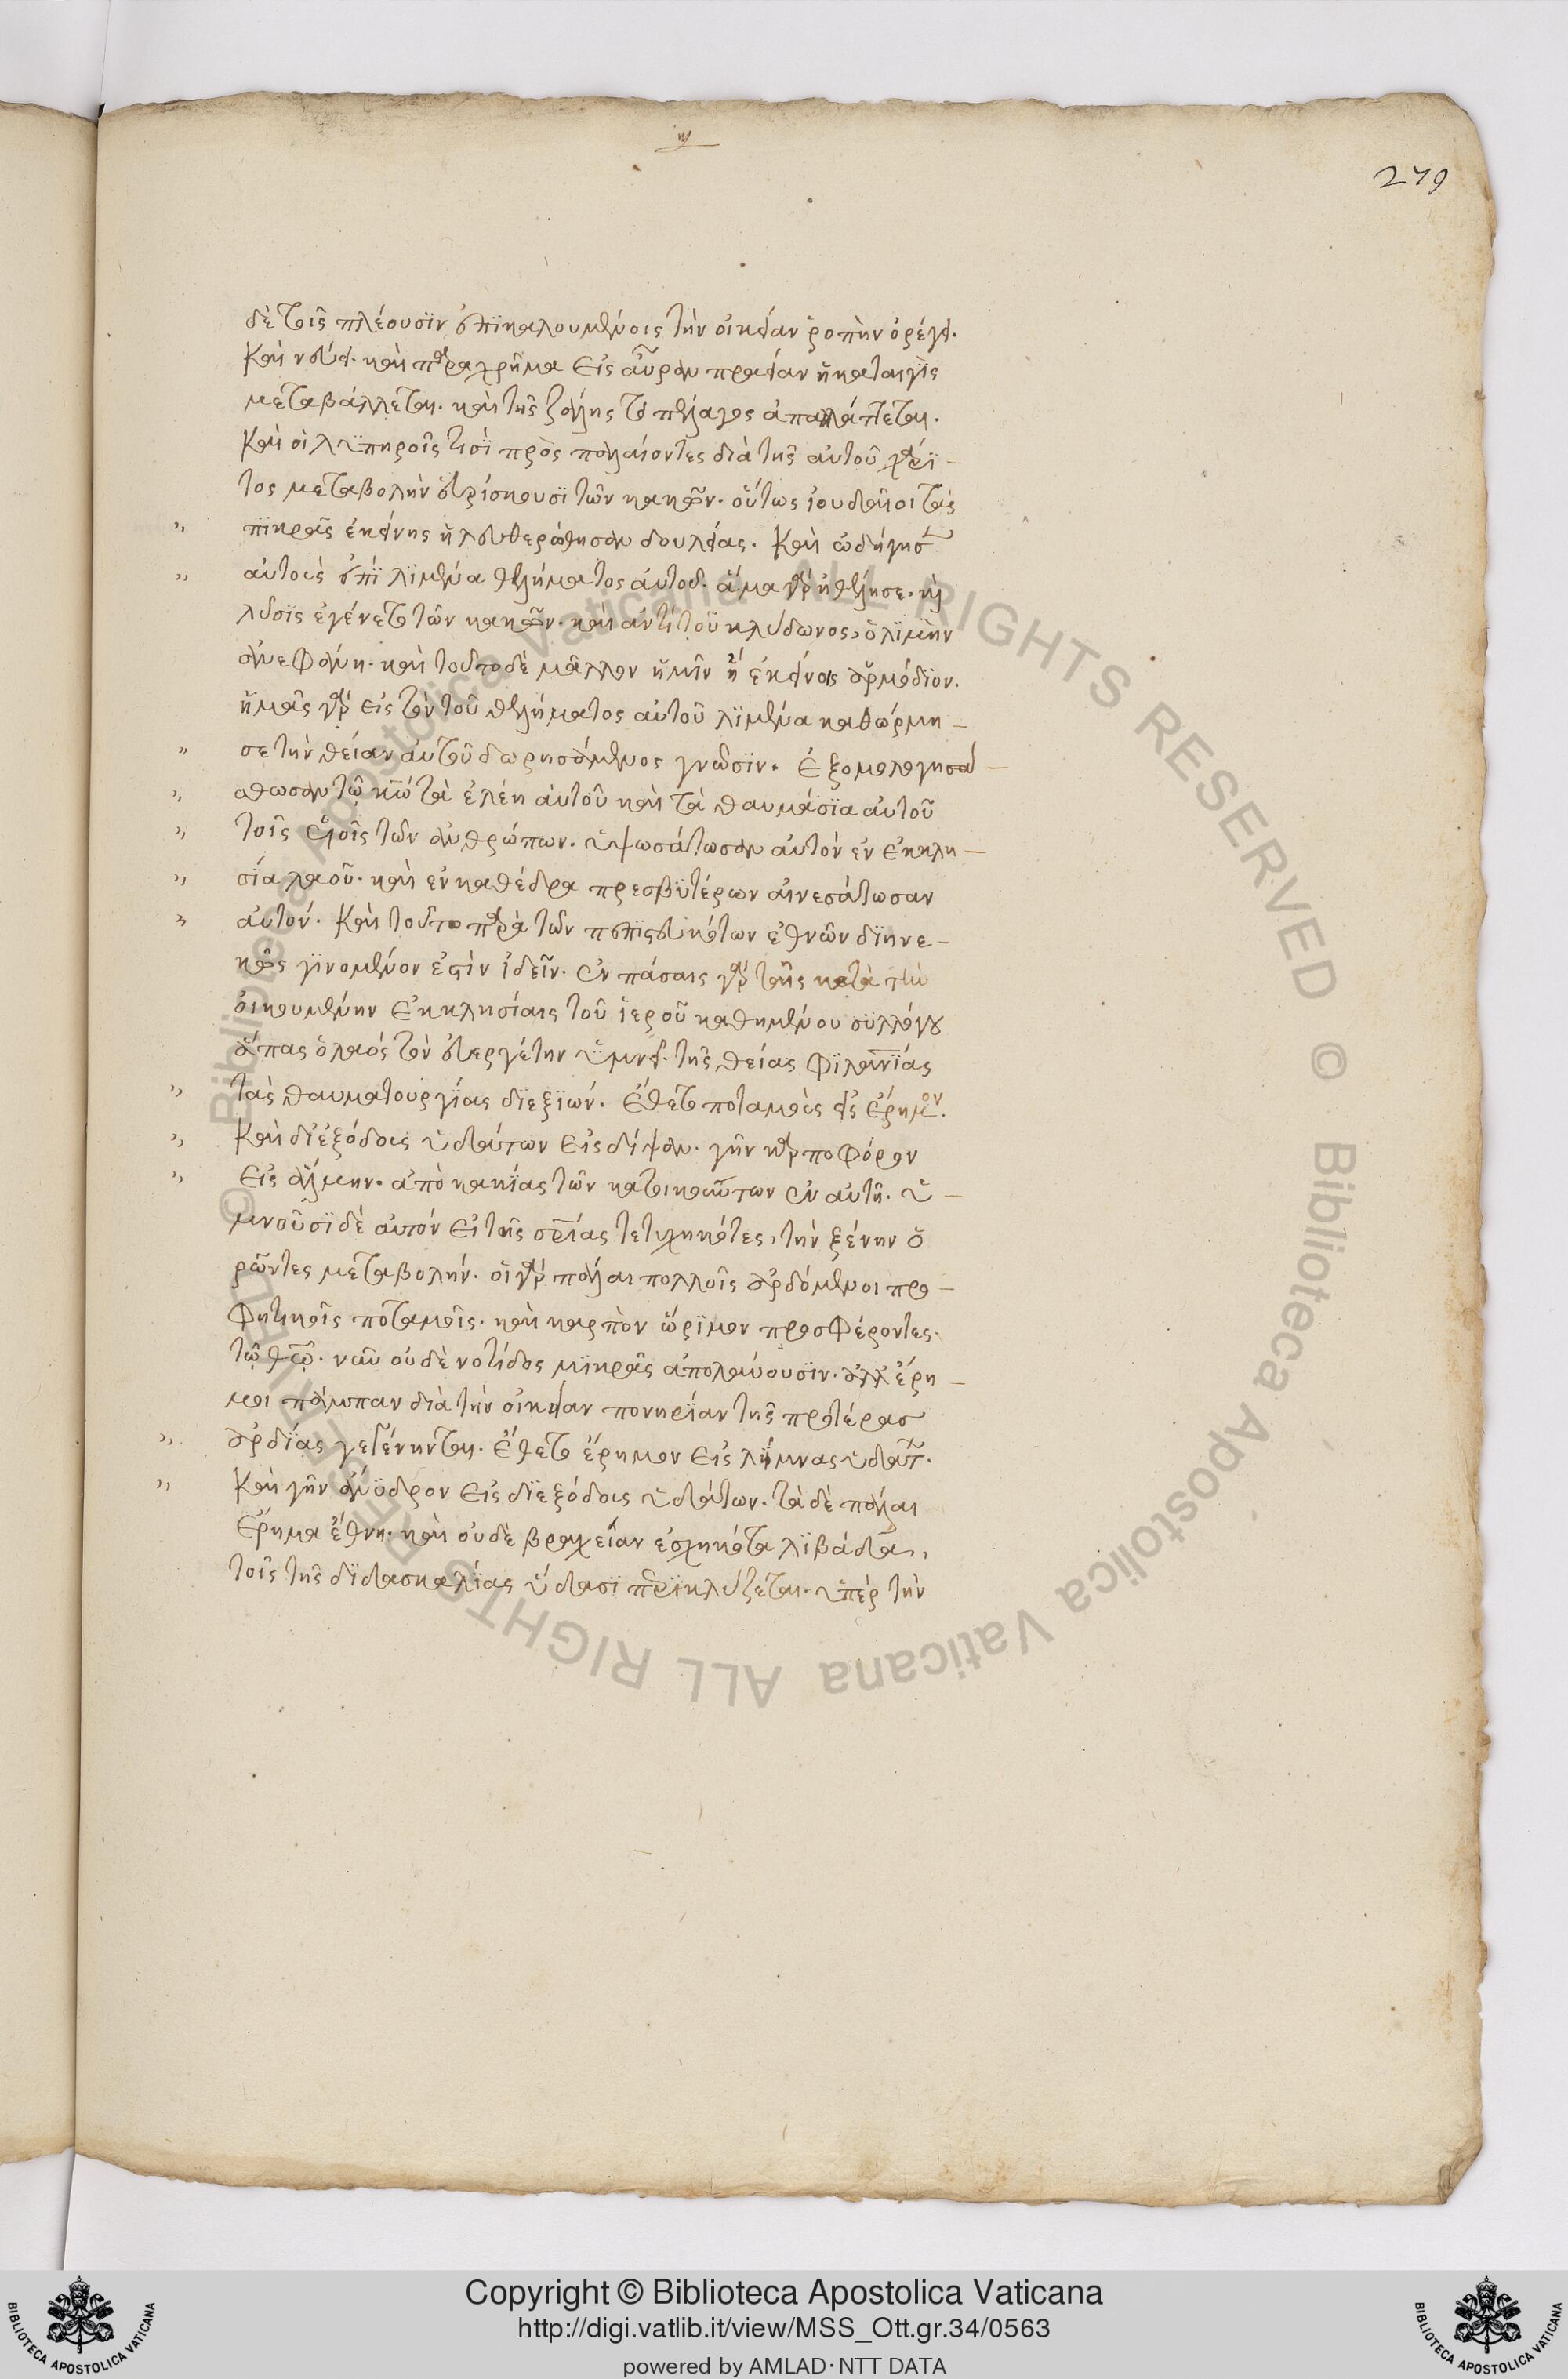 279
δὲ τοῖς πλέουσϊν ἐπϊκαλουμένοις τὴν οἰκείαν ῥοπὴν ὀρέγει.
Καὶ νεύει. καὶ παραχρῆμα εἰς αὔραν πραείαν ἡ καταιγὶς
μεταβάλλεται. καὶ τῆς ζάλης τὸ πέλαγος ἀπαλλάττεται.
Καὶ οἱ λϋπηροῖς τισϊ πρὸς παλαίοντες διὰ τῆς αὐτοῦ χάρϊ-
τος μεταβολὴν εὑρίσκουσϊ τῶν κακῶν. οὕτως ἰουδαῖοι τῆς
πϊκρᾶς ἐκείνης ἠλευθερώθησαν δουλείας. Καὶ ὡδήγησεν
αὐτοὺς ἐπϊ λϊμένα θελήματος αὐτοῦ. ἅμα γὰρ ἠθέλησε. καὶ
λύσϊς ἐγένετο τῶν κακῶν. καὶ ἀντὶ τοῦ κλύδωνος, ὁ λϊμὴν
ἀνεφάνη. καὶ τοῦτο δὲ μᾶλλον ἡμῖν ἢ ἐκείνοις ἁρμόδϊον.
ἡμᾶς γὰρ εἰς τὸν τοῦ θελήματος αὐτοῦ λϊμένα καθώρμη-
σε τὴν θείαν αὐτοῦ δωρησάμενος γνῶσϊν. Ἐξομολογησά-
σθωσαν τῷ κ̅ω̅ τὰ ἐλέη αὐτοῦ καὶ τὰ θαυμάσϊα αὐτοῦ
τοῖς υἱοῖς τῶν ἀνθρώπων. ὑψωσάτωσαν αὐτὸν ἐν ἐκκλη-
σϊα λαοῦ. καὶ ἐν καθέδρα πρεσβϋτέρων αἰνεσάτωσαν
αὐτόν. Καὶ τοῦτο παρὰ τῶν πεπϊστευκότων ἐθνῶν δϊηνε-
κῶς γϊνομένον ἐστὶν ἰδεῖν. ἐν πάσαις γὰρ ταῖς κατὰ τὴν
οἰκουμένην ἐκκλησίαις τοῦ ἱεροῦ καθημένου συλλόγου
ἅπας ὁ λαὸς τὸν εὐεργέτην ὑμνεῖ. τῆς θείας φϊλα̅ν̅ϊας
τὰς θαυματουργϊας δϊεξϊών. Ἔθετο ποταμοὺς εἰς ἔρημον.
Καὶ δϊεξόδους ὑδάτων εἰς δίψαν. γῆν καρποφόρον
εἰς ἅλμην. ἀπὸ κακϊας τῶν κατοικούντων ἐν αὐτῆ. ὑ-
μνοῦσϊ δὲ αὐτὸν οἱ τῆς σ̅ρ̅ίας τετυχηκότες, τὴν ξένην ὁ
ρῶντες μεταβολήν. οἱ γὰρ πάλαι πολλοῖς ἀρδόμενοι προ-
φητικοῖς ποταμοῖς. καὶ καρπὸν ὥρϊμον προσφέροντες.
τῷ θ̅ω̅. νῦν οὐδὲ νοτίδος μϊκρᾶς ἀπολαύουσϊν. ἀλλ' ἔρη-
μοι πάμπαν διὰ τὴν οἰκείαν πονηρίαν τῆς προτέρας
ἀρδϊας γεγένηνται. Ἔθετο ἔρημον εἰς λίμνας ὑδάτων.
Καὶ γῆν ἄνϋδρον εἰς δϊεξόδους ὑδάτων. τὰ δὲ πάλαι
ἔρημα ἔθνη. καὶ οὐδὲ βραχεῖαν ἐσχηκότα λϊβάδα,
τοῖς τῆς δϊδασκαλίας ὕδασϊ περϊκλύζεται. ὑπὲρ τὴν
Copyright © Biblioteca Apostolica Vaticana
http://digi.vatlib.it/view/MSS_Ott.gr.34/0563
powered by AMLAD·NTT DATA
BIBLIOTECA APOSTOLICA VATICANA
BIBLIOTECA APOSTOLICA VATICANA
© Biblioteca Apostolica Vaticana ALL RIGHTS RESERVED
© Biblioteca Apostolica Vaticana ALL RIGHTS RESERVED